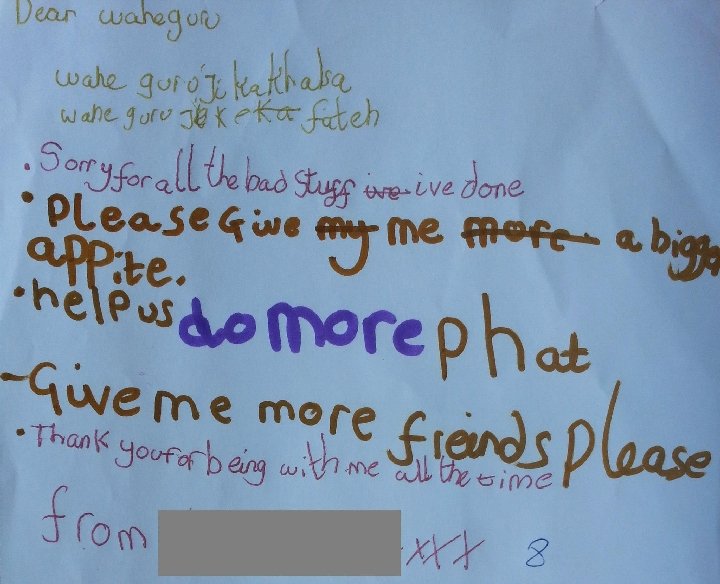 Dear waheguru
wahe guru Ji ka Khalsa
wahe guru Ji K fateh
. Sorry for all the bad stuff ive done
• PLease Give me a bigge
appite.
• help us do more phat
- Give me more freinds please
• Thank you for being with me all the time
from xxx 8